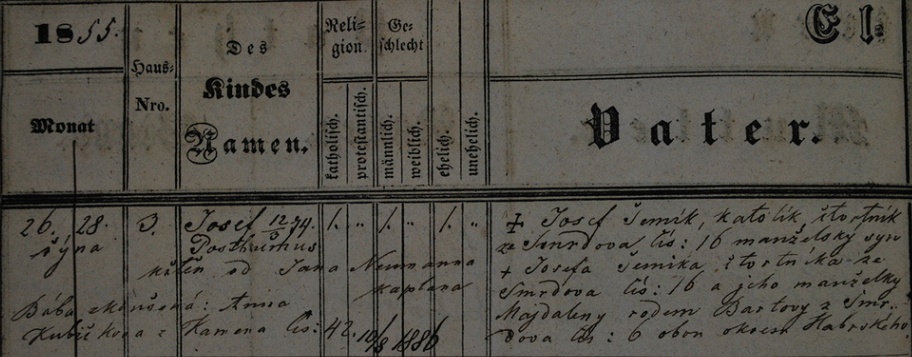 1855.
Monat
Haus-
Nro.
Des
Kindes
Namen.
Reli-
gion
Ge-
schlecht
katholisch.
protestantisch.
männlich.
weiblich.
ehelich.
unehelich.
El
Vater.
26. 28.
října
3.
Josef 12/3 74.
Posthumus
1. " 1. " 1. "
křtěn od Jana Neumanna
kaplana
Bába zkoušená: Anna
Kubičkova z Kamena čís: 42. 10/8 1886
+ Josef Šemík, katolík, čtvrtník
ze Smrdova čís: 16 manželský syn
+ Josefa Šemíka, čtvrtníka ze
Smrdova čís: 16 a jeho manželky
Majdaleny rodem Bartovy z Smr-
dova čís: 6 obou okresu Habrského